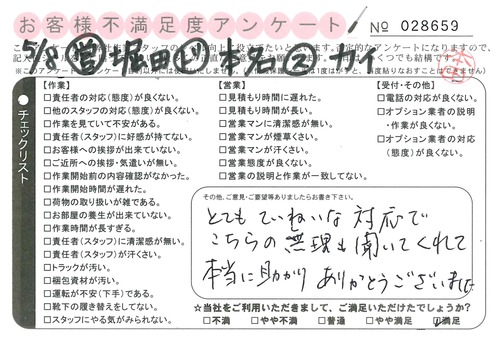 お客様不満足度アンケート
No 028659
5/8 営 堀田 リ 本名 2
●チェックリスト
【作業】
□責任者の対応(態度)が良くない。
□他のスタッフの対応(態度)が良くない。
□作業を見ていて不安がある。
□責任者(スタッフ)に好感が持てない。
□お客様への挨拶が出来ていない。
□ご近所への挨拶・気遣いが無い。
□作業開始前の内容確認がなかった。
□作業開始時間が遅れた。
□荷物の取り扱いが雑である。
□お部屋の養生が出来ていない。
□作業時間が長すぎる。
□責任者(スタッフ)に清潔感が無い。
□責任者(スタッフ)が汗くさい。
□トラックが汚い。
□梱包資材が汚い。
□運転が不安(下手)である。
□靴下の履き替えをしてない。
□スタッフにやる気がみられない。
【営業】
□見積もり時間が遅れた。
□見積もり時間が長い。
□営業マンに清潔感が無い。
□営業マンが煙草くさい。
□営業マンが汗くさい。
□営業態度が良くない。
□営業の説明と作業が一致してない。
【受付・その他】
□電話の対応が良くない。
□オプション業者の説明
・作業が良くない。
□オプション業者の対応
(態度)が良くない。
その他、ご意見・ご要望等ありましたらお書き下さい。
とてもていねいな対応で
こちらの無理も聞いてくれて
本当に助かりありがとうございました
☆当社をご利用いただきまして、ご満足いただけたでしょうか?
□不満 □やや不満 □普通 □やや満足 □満足